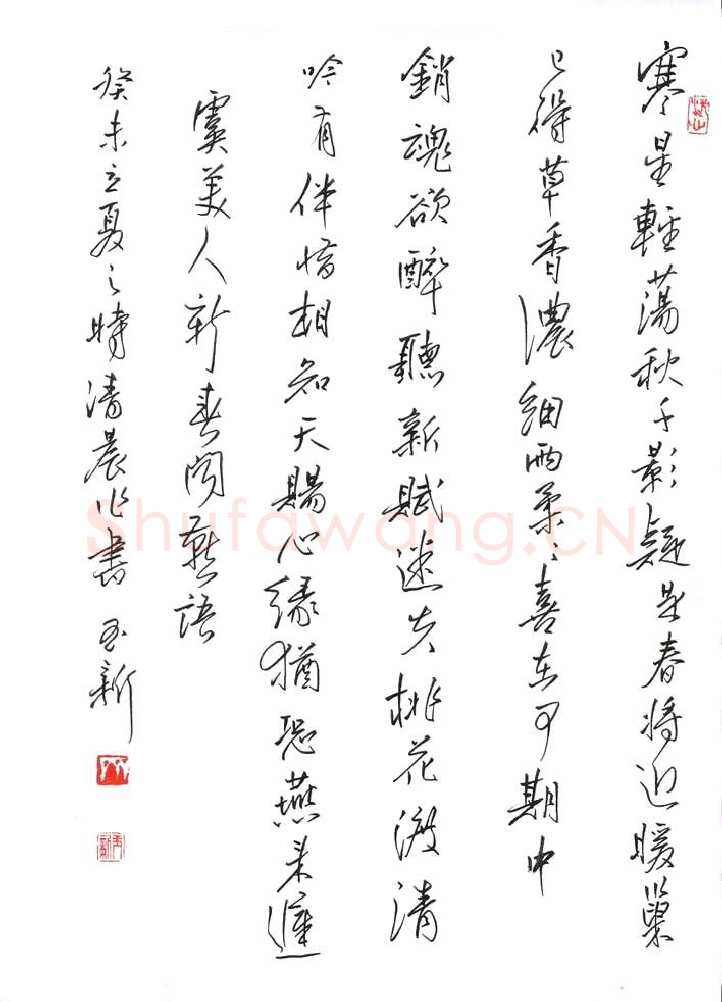 寒星輕蕩秋千影疑是春將近暖巢
已得草香濃細雨柔柔喜在可期中
銷魂欲醉聽新賦迷失桃花渡清
吟有伴惜相知天賜心緣猶恐燕來遲
虞美人新春聞燕語
癸未立夏之時清晨作書 玉新
Shufawang.CN